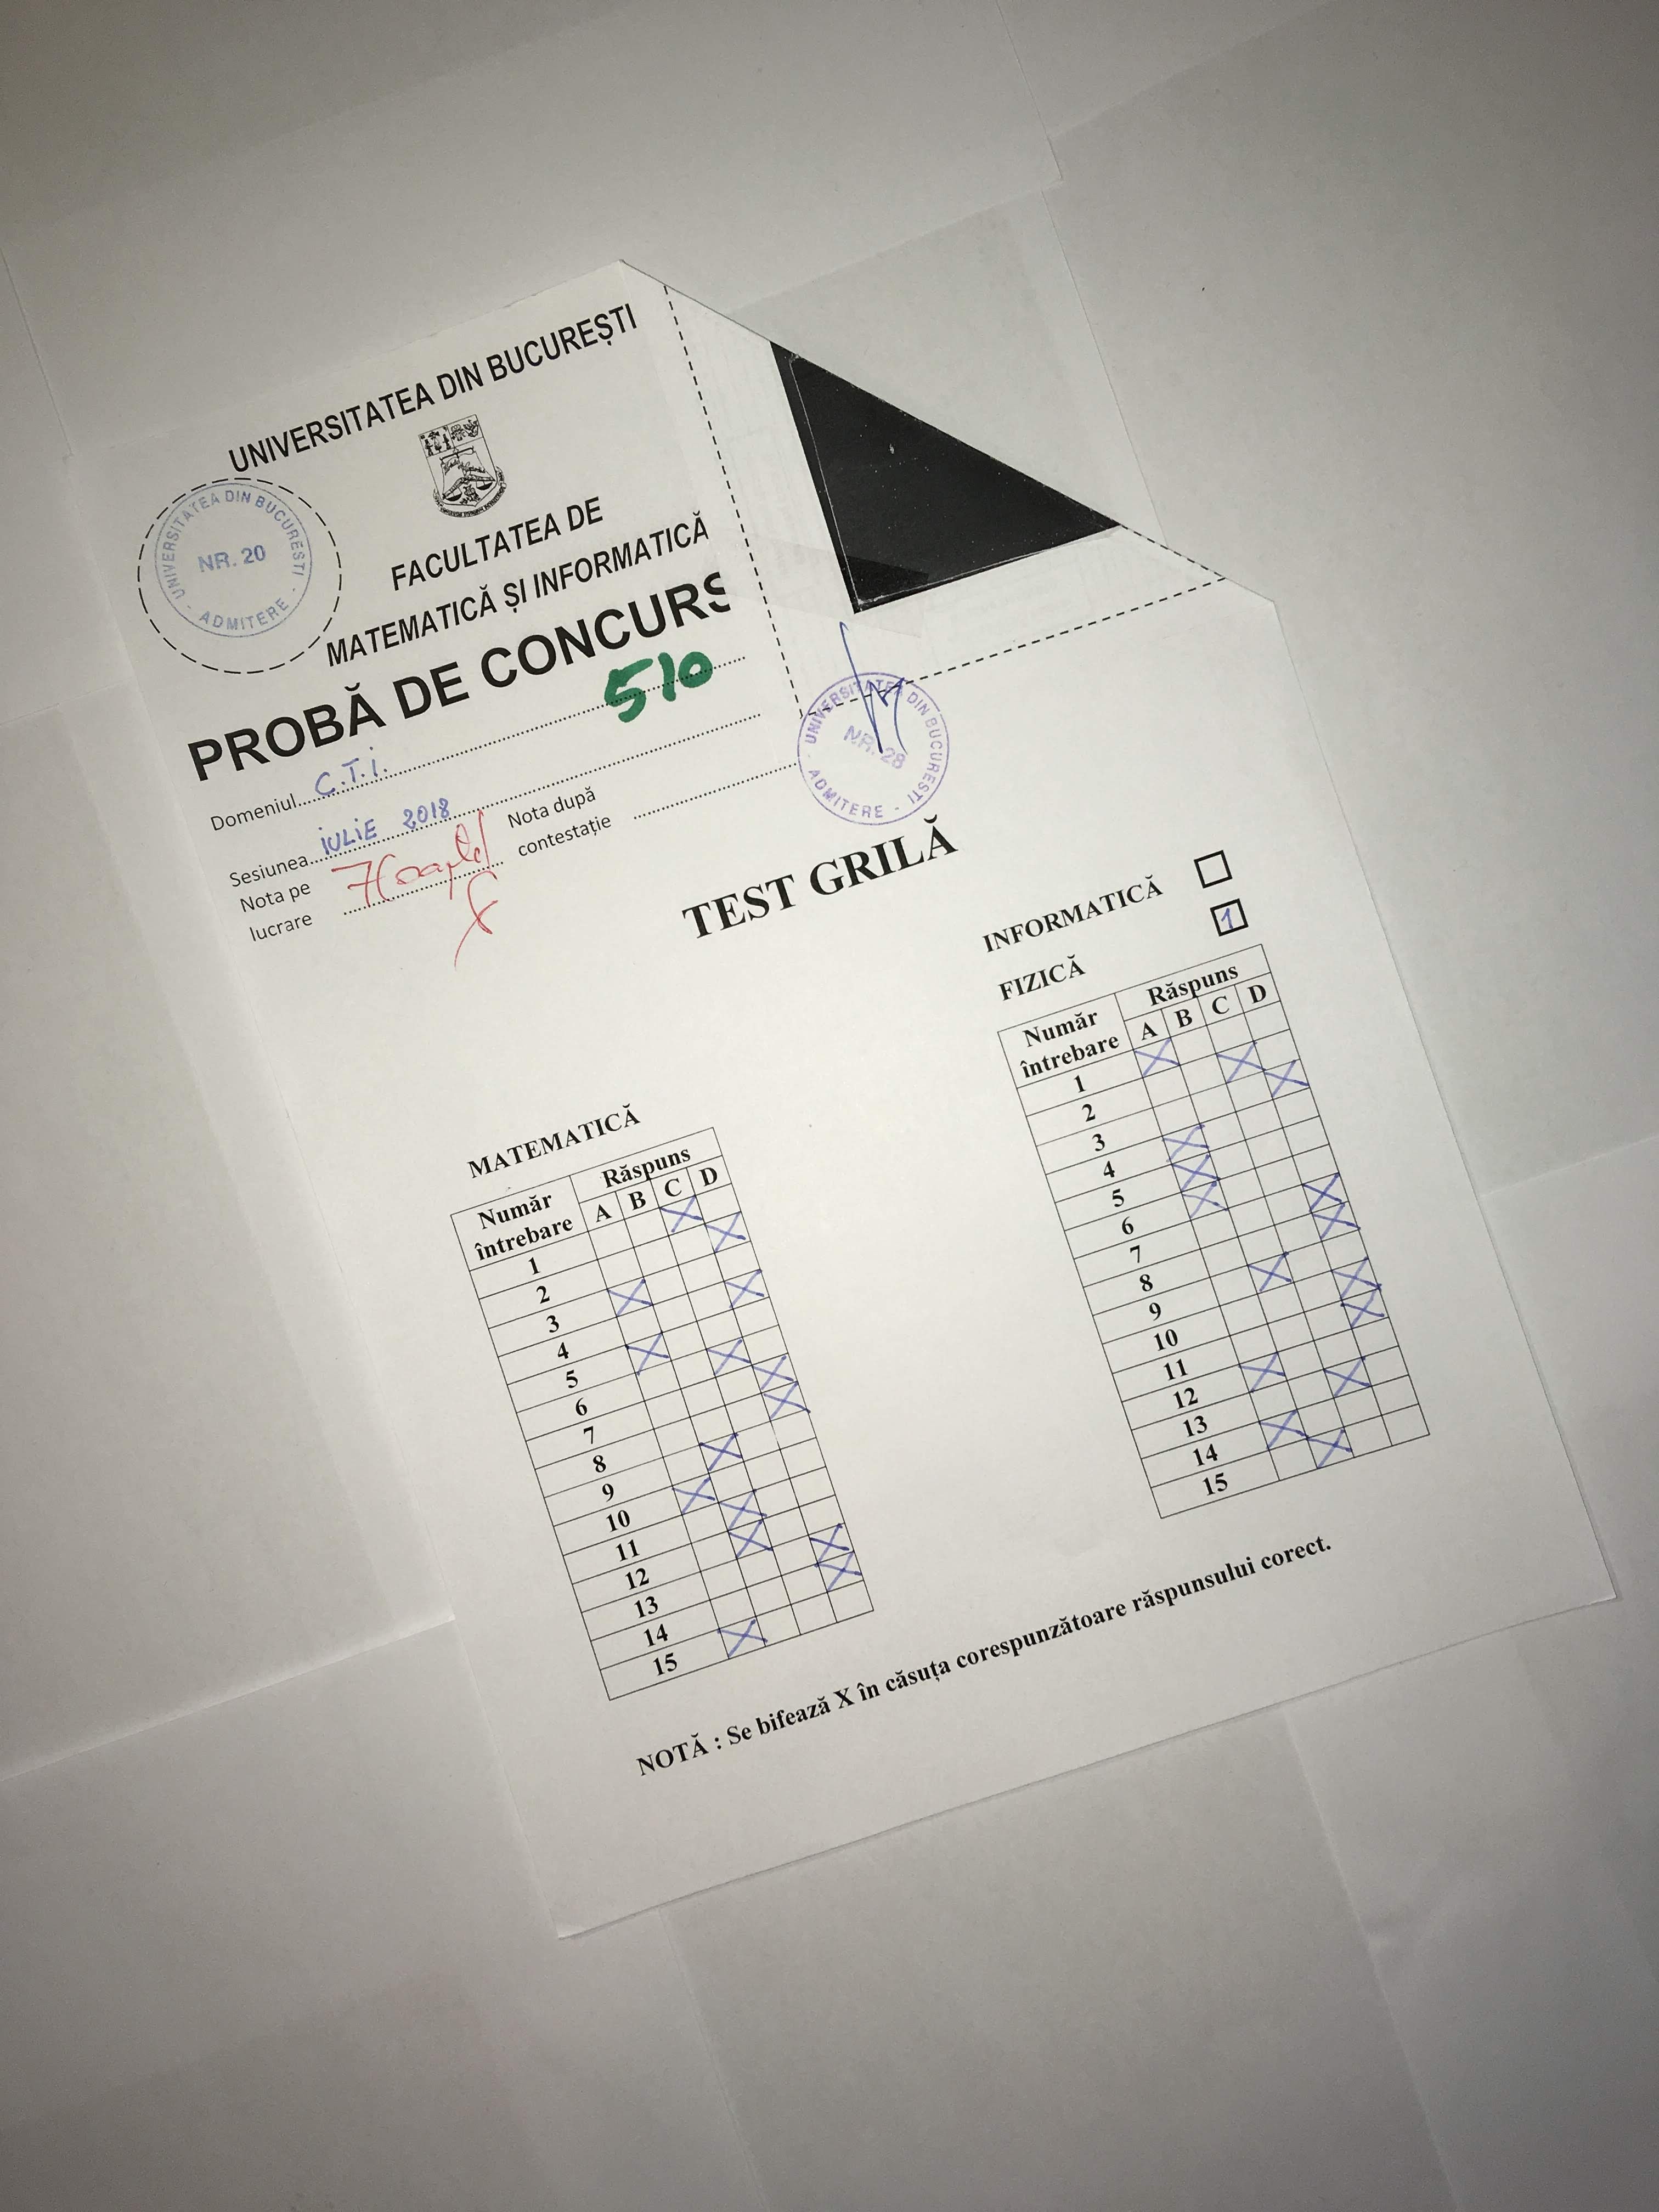 UNIVERSITATEA DIN BUCUREȘTI
UNIVERSITATEA DIN BUCURESTI - ADMITERE -
NR. 20
FACULTATEA DE
MATEMATICĂ ȘI INFORMATICĂ
PROBĂ DE CONCURS
510
Domeniul C.T.i.
Sesiunea iULiE 2018
Nota pe lucrare 7(șapte)
Nota după contestație
UNIVERSITATEA DIN BUCURESTI - ADMITERE -
NR. 28
TEST GRILĂ
INFORMATICĂ
FIZICĂ 1
MATEMATICĂ
Număr întrebare Răspuns
A B C D
1
2
3
4
5
6
7
8
9
10
11
12
13
14
15
Număr întrebare Răspuns
A B C D
1
2
3
4
5
6
7
8
9
10
11
12
13
14
15
NOTĂ : Se bifează X în căsuța corespunzătoare răspunsului corect.